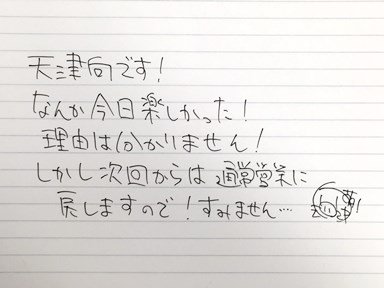 天津向です!
なんか今日楽しかった!
理由は分かりません!
しかし次回からは通常営業に
戻しますので!すみません…